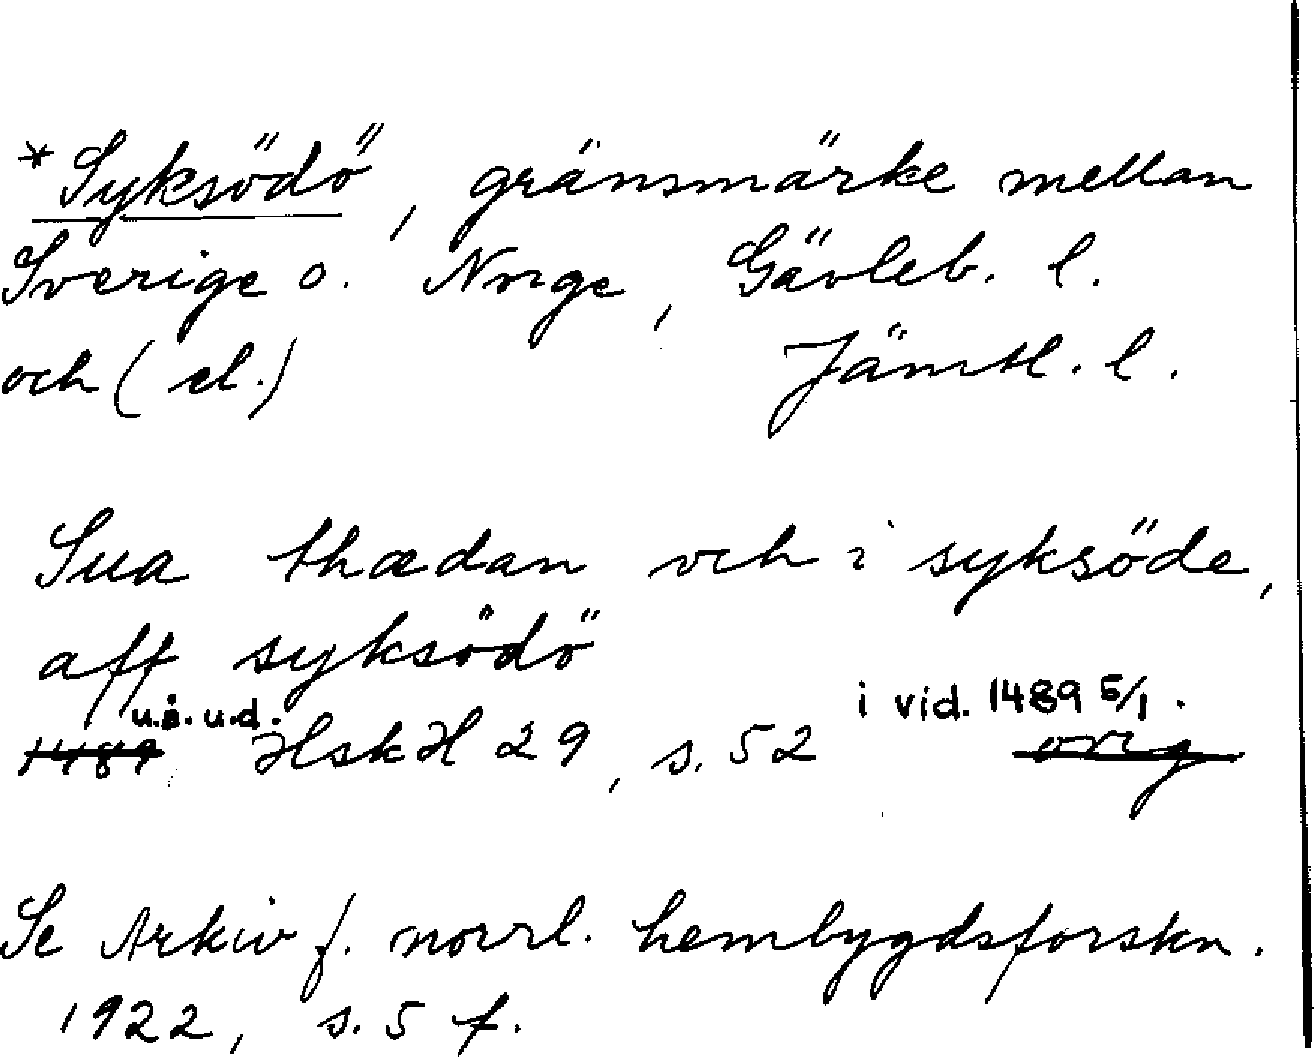 *Syksödö, gränsmärke mellan
Sverige o. Norge, Gävleb. l.
och (el.) Jämtl. l.
Sua thædan och i syksöde,
aff syksödö
u.å. u.d. i vid. 1489 5/1.
1489 HskH 29, s. 52 orig
Se Arkiv f. norrl. hembygdsforskn.
1922, s. 5 f.